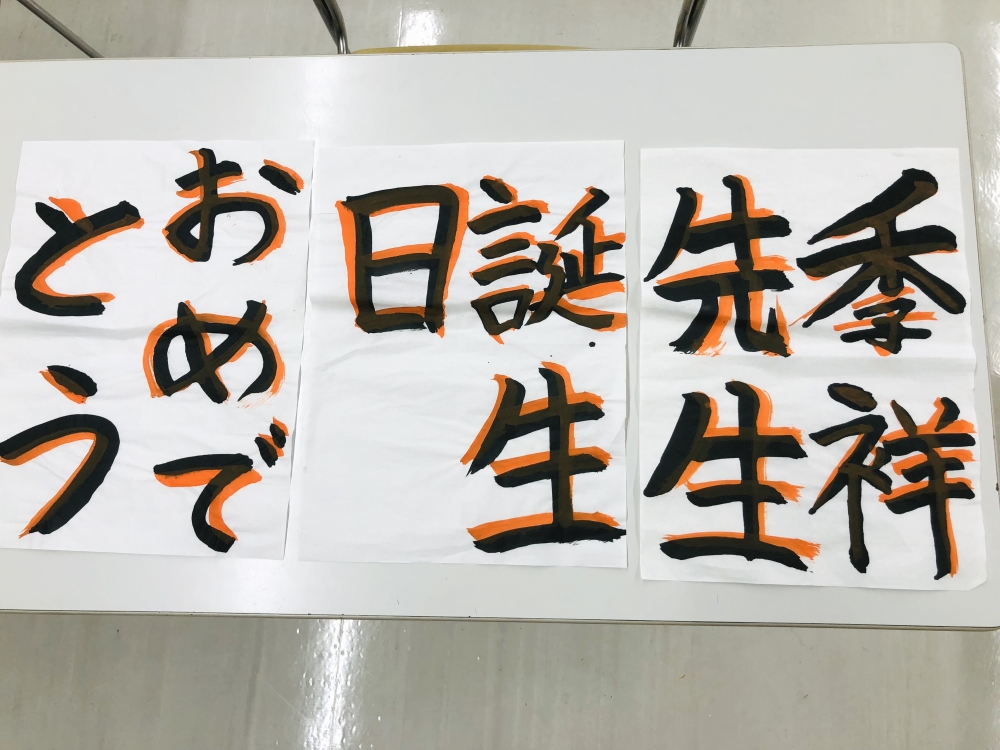 季祥
先生
誕生
日
おめで
とう